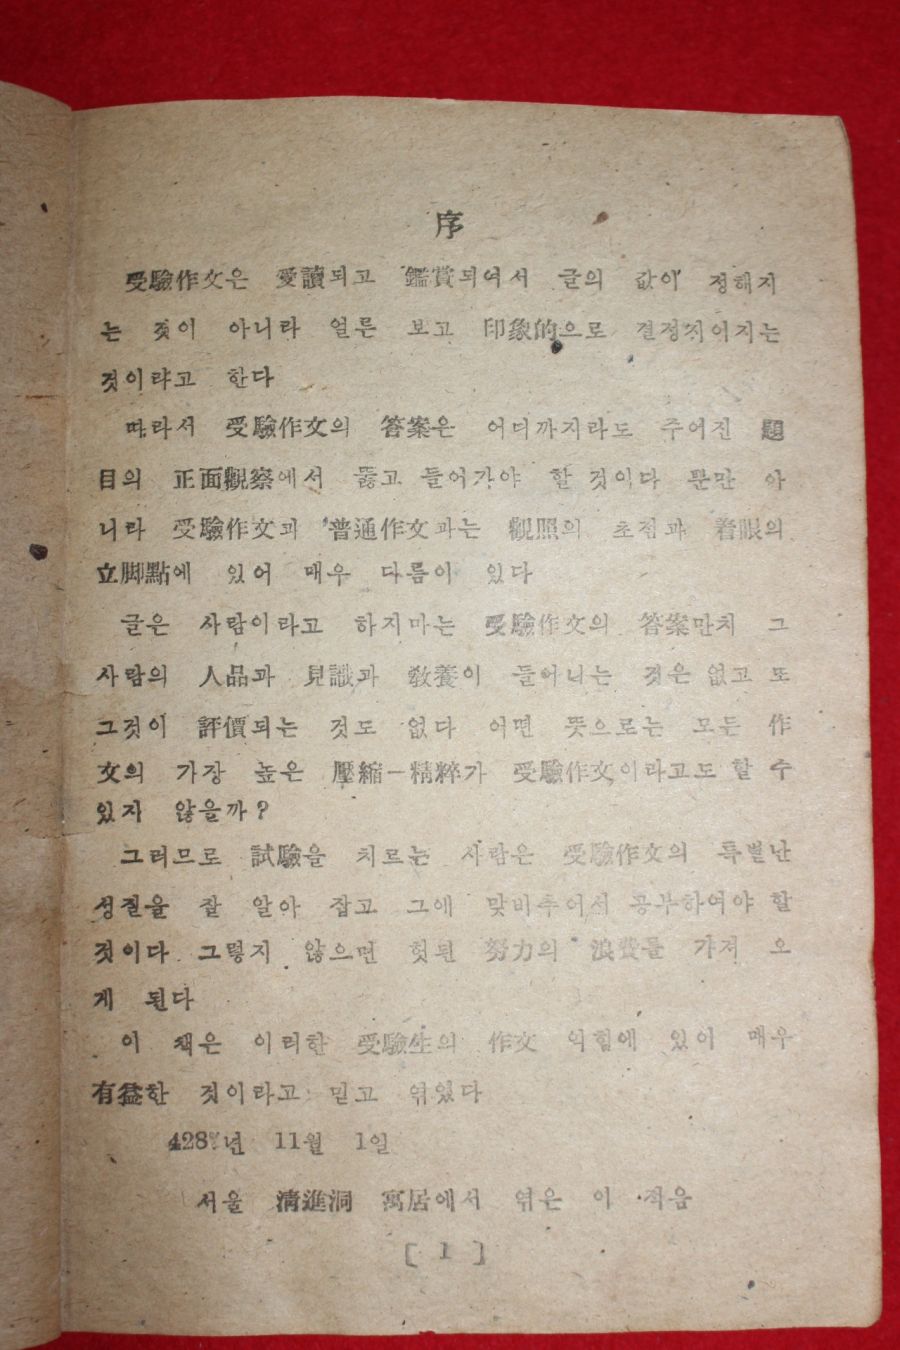 序
受驗作文은 愛讀되고 鑑賞되여서 글의 값이 정해지
는 것이 아니라 얼른 보고 印象的으로 결정지어지는
것이라고 한다
따라서 受驗作文의 答案은 어디까지라도 주어진 題
目의 正面觀察에서 뚫고 들어가야 할 것이다 뿐만 아
니라 受驗作文과 普通作文과는 觀照의 초점과 着眼의
立脚點에 있어 매우 다름이 있다
글은 사람이라고 하지마는 受驗作文의 答案만치 그
사람의 人品과 見識과 敎養이 들어나는 것은 없고 또
그것이 評價되는 것도 없다 어떤 뜻으로는 모든 作
文의 가장 높은 壓縮—精粹가 受驗作文이라고도 할 수
있지 않을까?
그러므로 試驗을 치르는 사람은 受驗作文의 특별난
성질을 잘 알아 잡고 그에 맞비추어서 공부하여야 할
것이다 그렇지 않으면 헛된 努力의 浪費를 가져 오
게 된다
이 책은 이러한 受驗生의 作文 익힘에 있어 매우
有益한 것이라고 믿고 엮었다
년 11월 1일
서울 淸進洞 寓居에서 엮은 이 적음
[ 1 ]